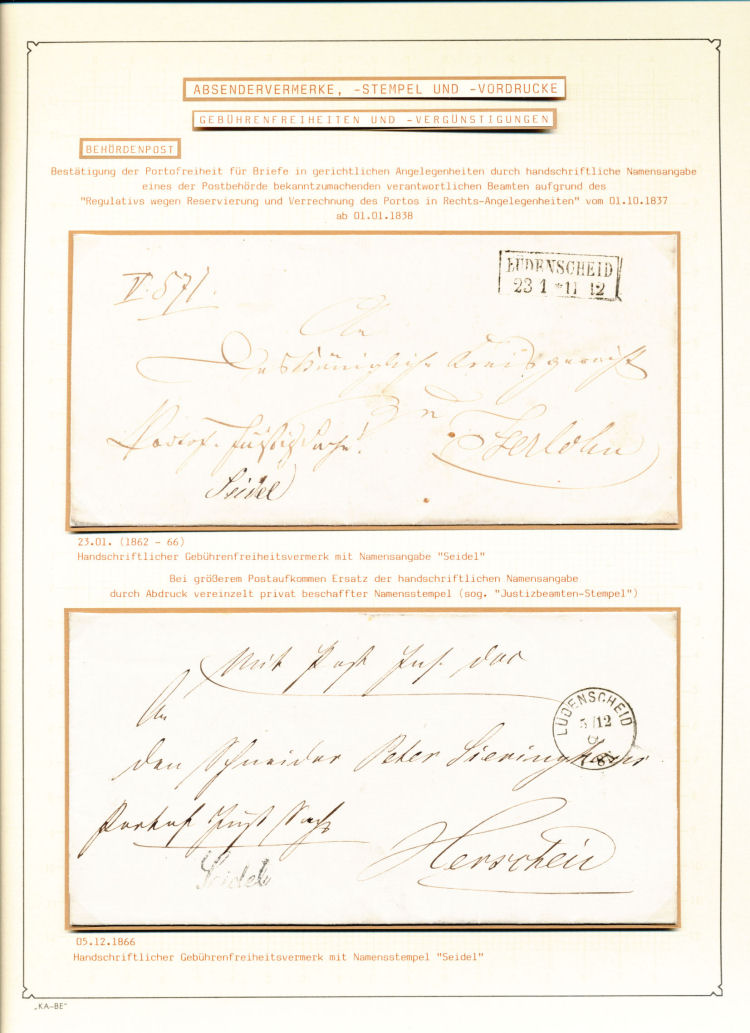 ABSENDERVERMERKE, -STEMPEL UND -VORDRUCKE
GEBÜHRENFREIHEITEN UND -VERGÜNSTIGUNGEN
BEHÖRDENPOST
Bestätigung der Portofreiheit für Briefe in gerichtlichen Angelegenheiten durch handschriftliche Namensangabe
eines der Postbehörde bekanntzumachenden verantwortlichen Beamten aufgrund des
"Regulativs wegen Reservierung und Verrechnung des Portos in Rechts-Angelegenheiten" vom 01.10.1837
ab 01.01.1838
LÜDENSCHEID
23 1 * 11 12
V. 571.
An
Das Königliche Kreisgericht
zu
Iserlohn
Portof. Justizsache!
Seidel
23.01. (1862 - 66)
Handschriftlicher Gebührenfreiheitsvermerk mit Namensangabe "Seidel"
Bei größerem Postaufkommen Ersatz der handschriftlichen Namensangabe
durch Abdruck vereinzelt privat beschaffter Namensstempel (sog. "Justizbeamten-Stempel")
Mit Post Ins. Doc
LÜDENSCHEID
5/12
An
den Schneider Peter
Portof Just Sache
Herscheid
Seidel
05.12.1866
Handschriftlicher Gebührenfreiheitsvermerk mit Namensstempel "Seidel"
„KA-BE"